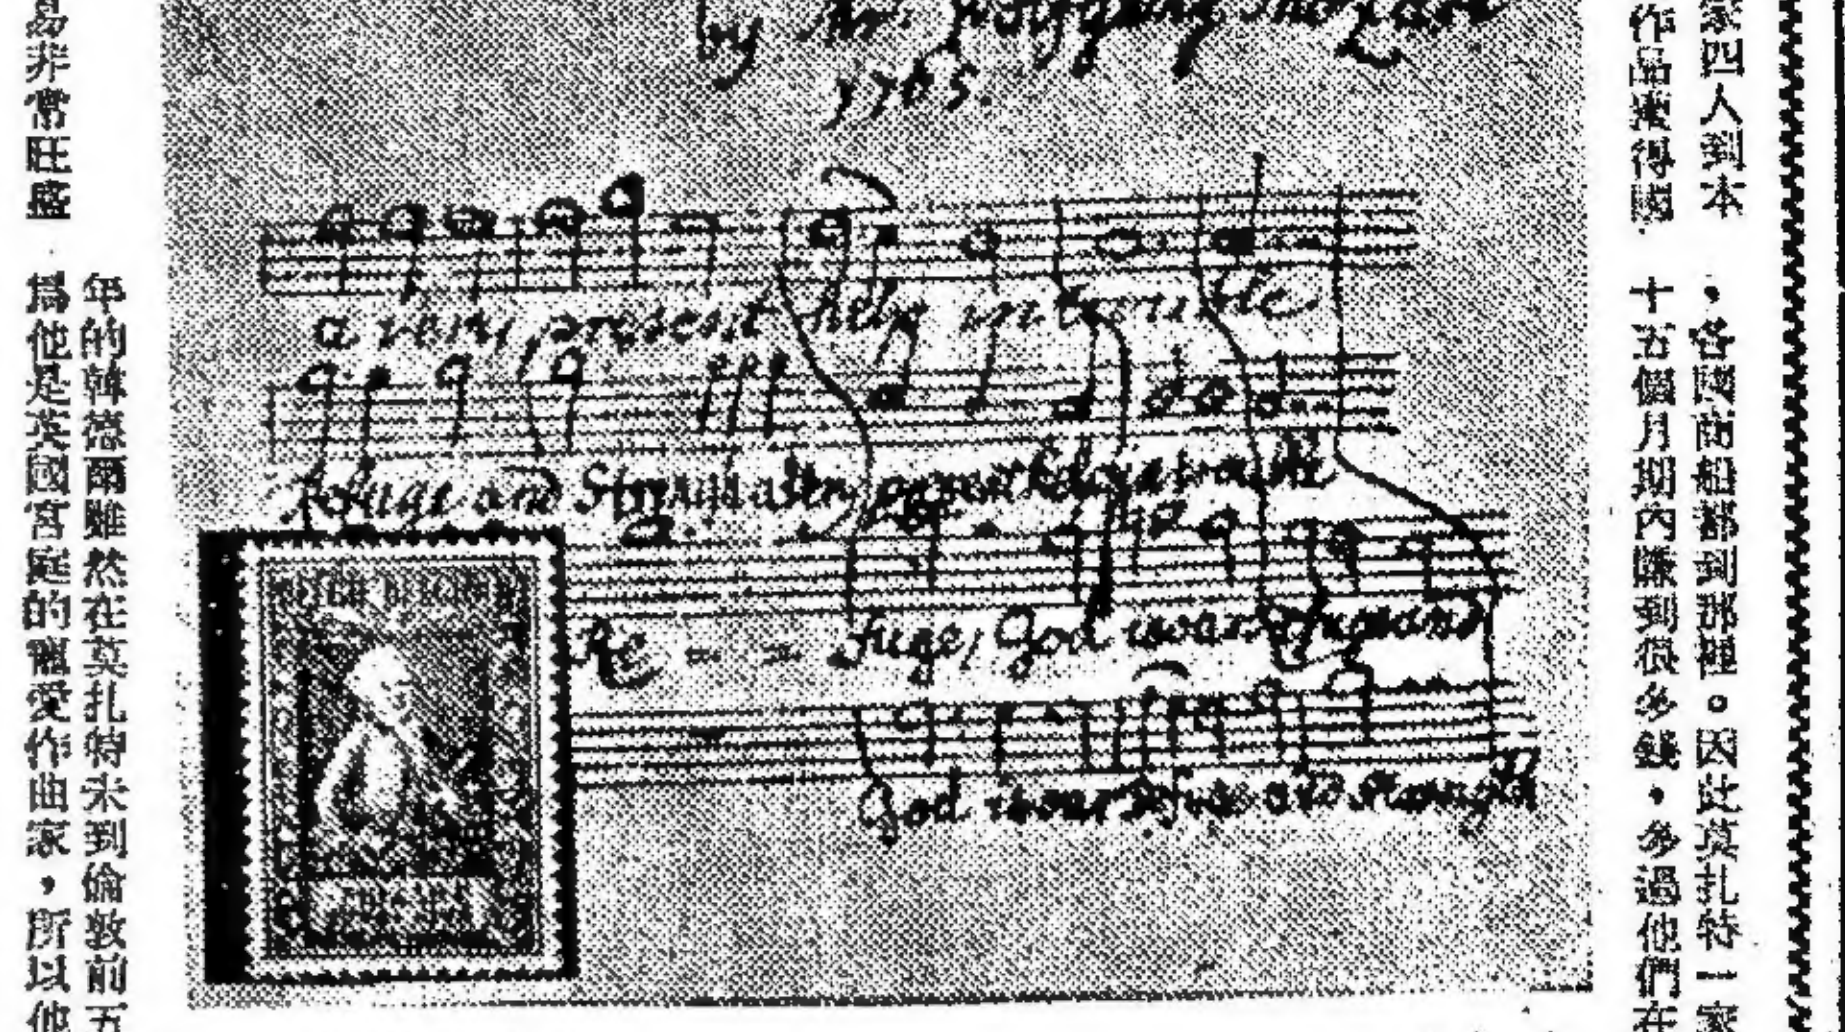 家四人到本
作品獲得國
·各國商船都到那裡。因此莫扎特一家
十五個月期內賺到很多錢,多過他們在
by Mr. Wolfgang Mozart
1765.
a very present help in trouble
Refuge and Strength
Re - - fuge, God is our Refuge and
God is our Refuge and strength
易非常旺盛
年的韓德爾雖然在莫扎特未到倫敦前五
爲他是英國宮庭的寵愛作曲家,所以他